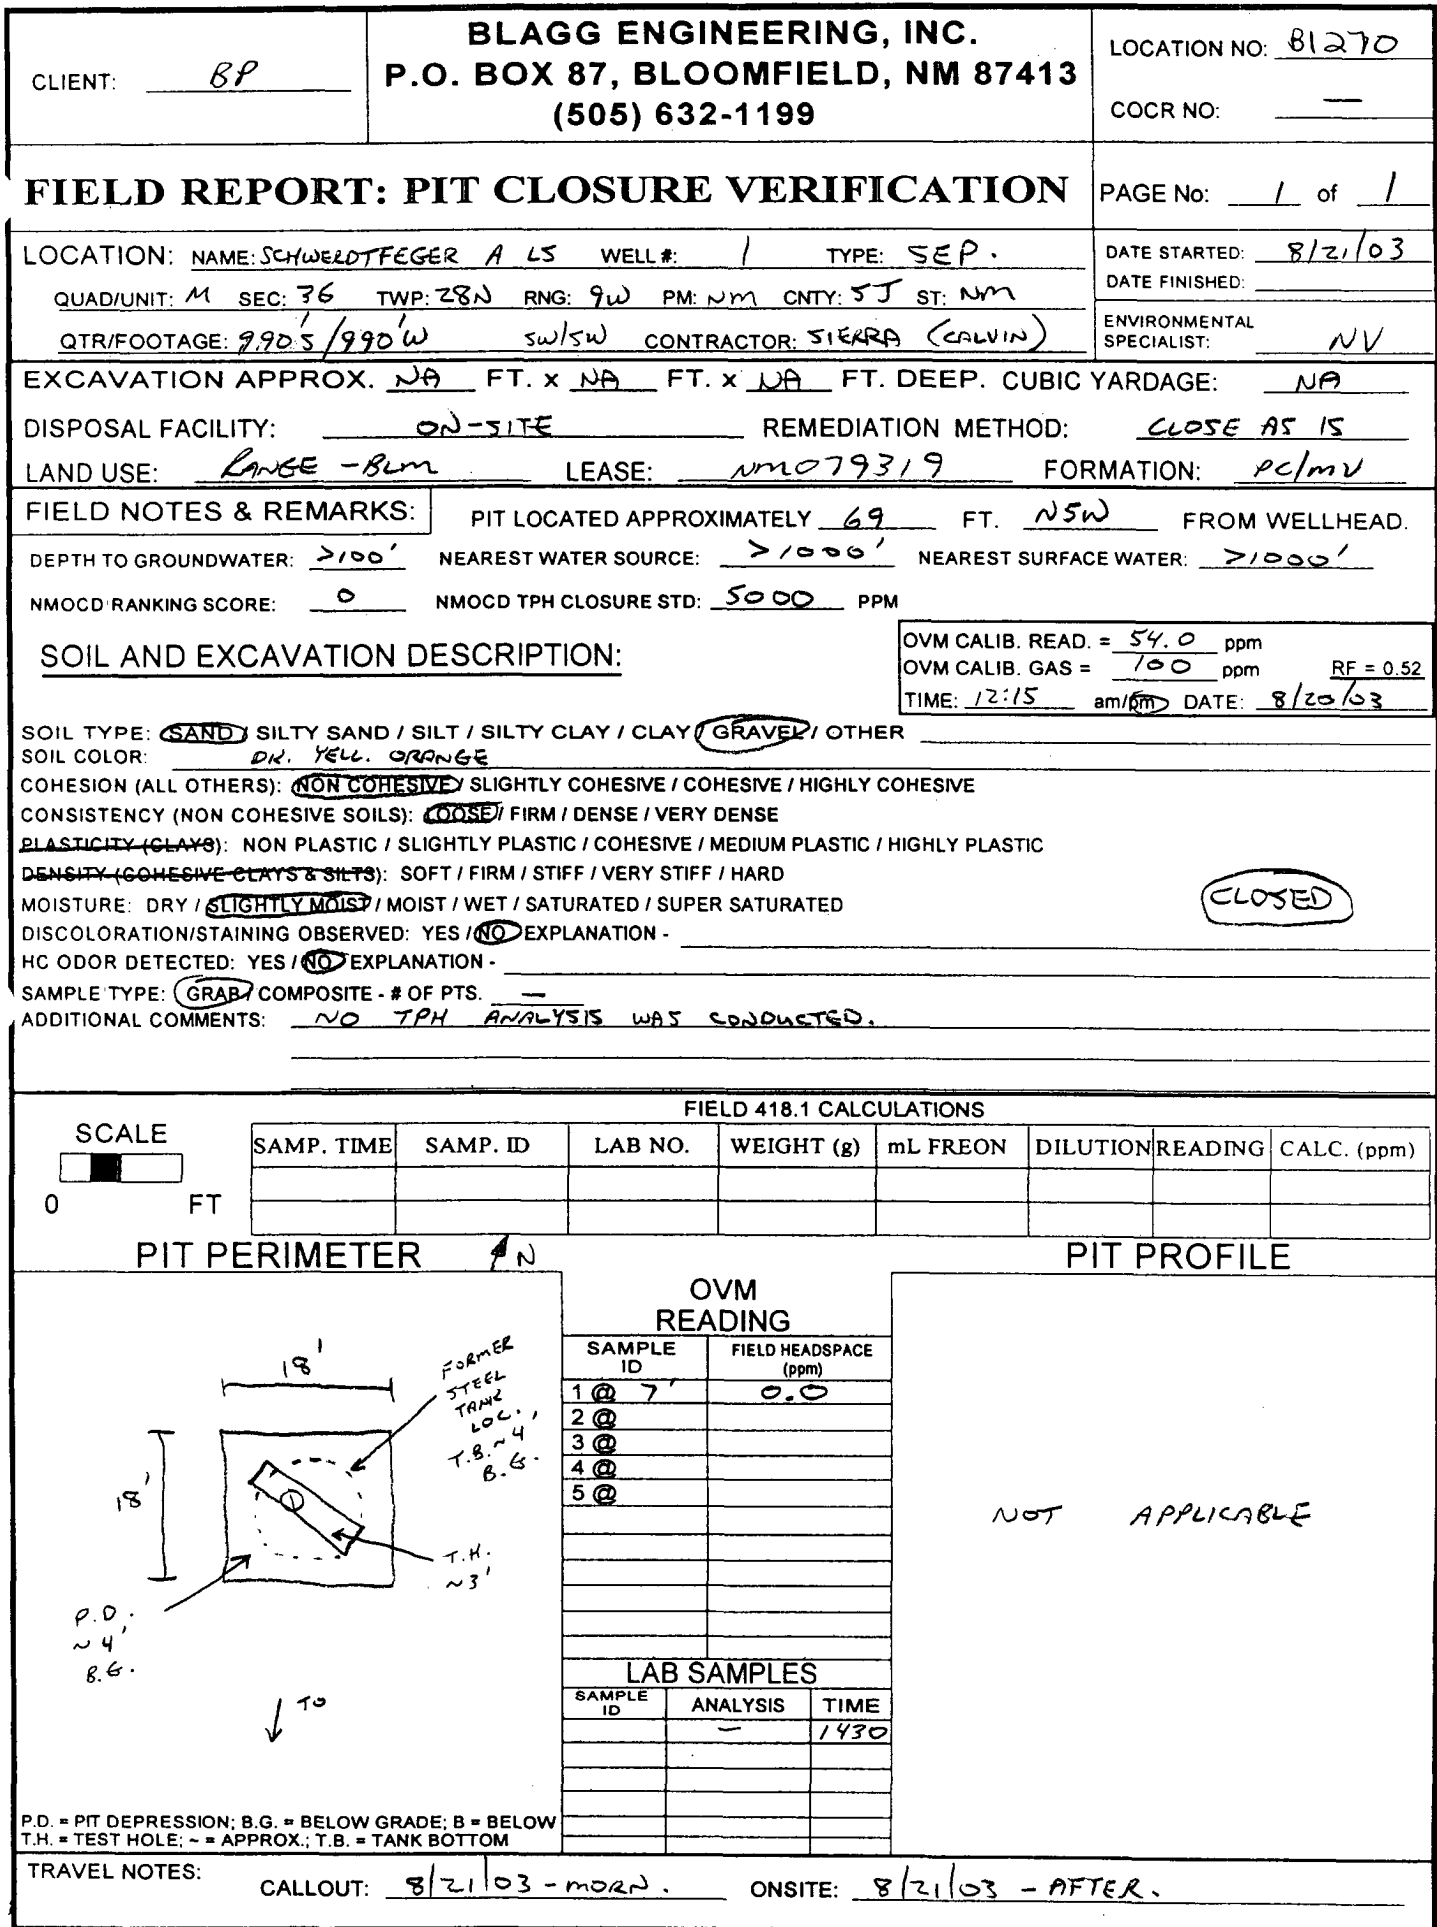 BLAGG ENGINEERING, INC.
P.O. BOX 87, BLOOMFIELD, NM 87413
(505) 632-1199
CLIENT: BP
LOCATION NO: B1270
COCR NO: —
FIELD REPORT: PIT CLOSURE VERIFICATION
PAGE No: 1 of 1
LOCATION: NAME: SCHWERDTFEGER A LS WELL #: 1 TYPE: SEP.
QUAD/UNIT: M SEC: 36 TWP: 28N RNG: 9W PM: NM CNTY: SJ ST: NM
QTR/FOOTAGE: 990'S/990'W SW/SW CONTRACTOR: SIERRA (CALVIN)
DATE STARTED: 8/21/03
DATE FINISHED:
ENVIRONMENTAL
SPECIALIST: NV
EXCAVATION APPROX. NA FT. x NA FT. x NA FT. DEEP. CUBIC YARDAGE: NA
DISPOSAL FACILITY: ON-SITE REMEDIATION METHOD: CLOSE AS IS
LAND USE: RANGE - BLM LEASE: NM079319 FORMATION: PC/MV
FIELD NOTES & REMARKS: PIT LOCATED APPROXIMATELY 69 FT. N5W FROM WELLHEAD.
DEPTH TO GROUNDWATER: >100' NEAREST WATER SOURCE: >1000' NEAREST SURFACE WATER: >1000'
NMOCD RANKING SCORE: 0 NMOCD TPH CLOSURE STD: 5000 PPM
SOIL AND EXCAVATION DESCRIPTION:
OVM CALIB. READ. = 54.0 ppm
OVM CALIB. GAS = 100 ppm RF = 0.52
TIME: 12:15 am/pm DATE: 8/20/03
SOIL TYPE: SAND / SILTY SAND / SILT / SILTY CLAY / CLAY / GRAVEL / OTHER
SOIL COLOR: DK. YELL. ORANGE
COHESION (ALL OTHERS): NON COHESIVE / SLIGHTLY COHESIVE / COHESIVE / HIGHLY COHESIVE
CONSISTENCY (NON COHESIVE SOILS): LOOSE / FIRM / DENSE / VERY DENSE
PLASTICITY (CLAYS): NON PLASTIC / SLIGHTLY PLASTIC / COHESIVE / MEDIUM PLASTIC / HIGHLY PLASTIC
DENSITY (COHESIVE CLAYS & SILTS): SOFT / FIRM / STIFF / VERY STIFF / HARD
MOISTURE: DRY / SLIGHTLY MOIST / MOIST / WET / SATURATED / SUPER SATURATED
CLOSED
DISCOLORATION/STAINING OBSERVED: YES / NO EXPLANATION -
HC ODOR DETECTED: YES / NO EXPLANATION -
SAMPLE TYPE: GRAB / COMPOSITE - # OF PTS. —
ADDITIONAL COMMENTS: NO TPH ANALYSIS WAS CONDUCTED.
FIELD 418.1 CALCULATIONS
SCALE
0 FT
SAMP. TIME SAMP. ID LAB NO. WEIGHT (g) mL FREON DILUTION READING CALC. (ppm)
PIT PERIMETER N
PIT PROFILE
18'
18'
FORMER
STEEL
TANK
LOC.
T.B. ~ 4'
B.G.
T.H.
~3'
P.D.
~ 4'
B.G.
TO
OVM
READING
SAMPLE
ID
FIELD HEADSPACE
(ppm)
1 @ 7' 0.0
2 @
3 @
4 @
5 @
NOT APPLICABLE
LAB SAMPLES
SAMPLE
ID
ANALYSIS TIME
— 1430
P.D. = PIT DEPRESSION; B.G. = BELOW GRADE; B = BELOW
T.H. = TEST HOLE; ~ = APPROX.; T.B. = TANK BOTTOM
TRAVEL NOTES: CALLOUT: 8/21/03 - MORN. ONSITE: 8/21/03 - AFTER.